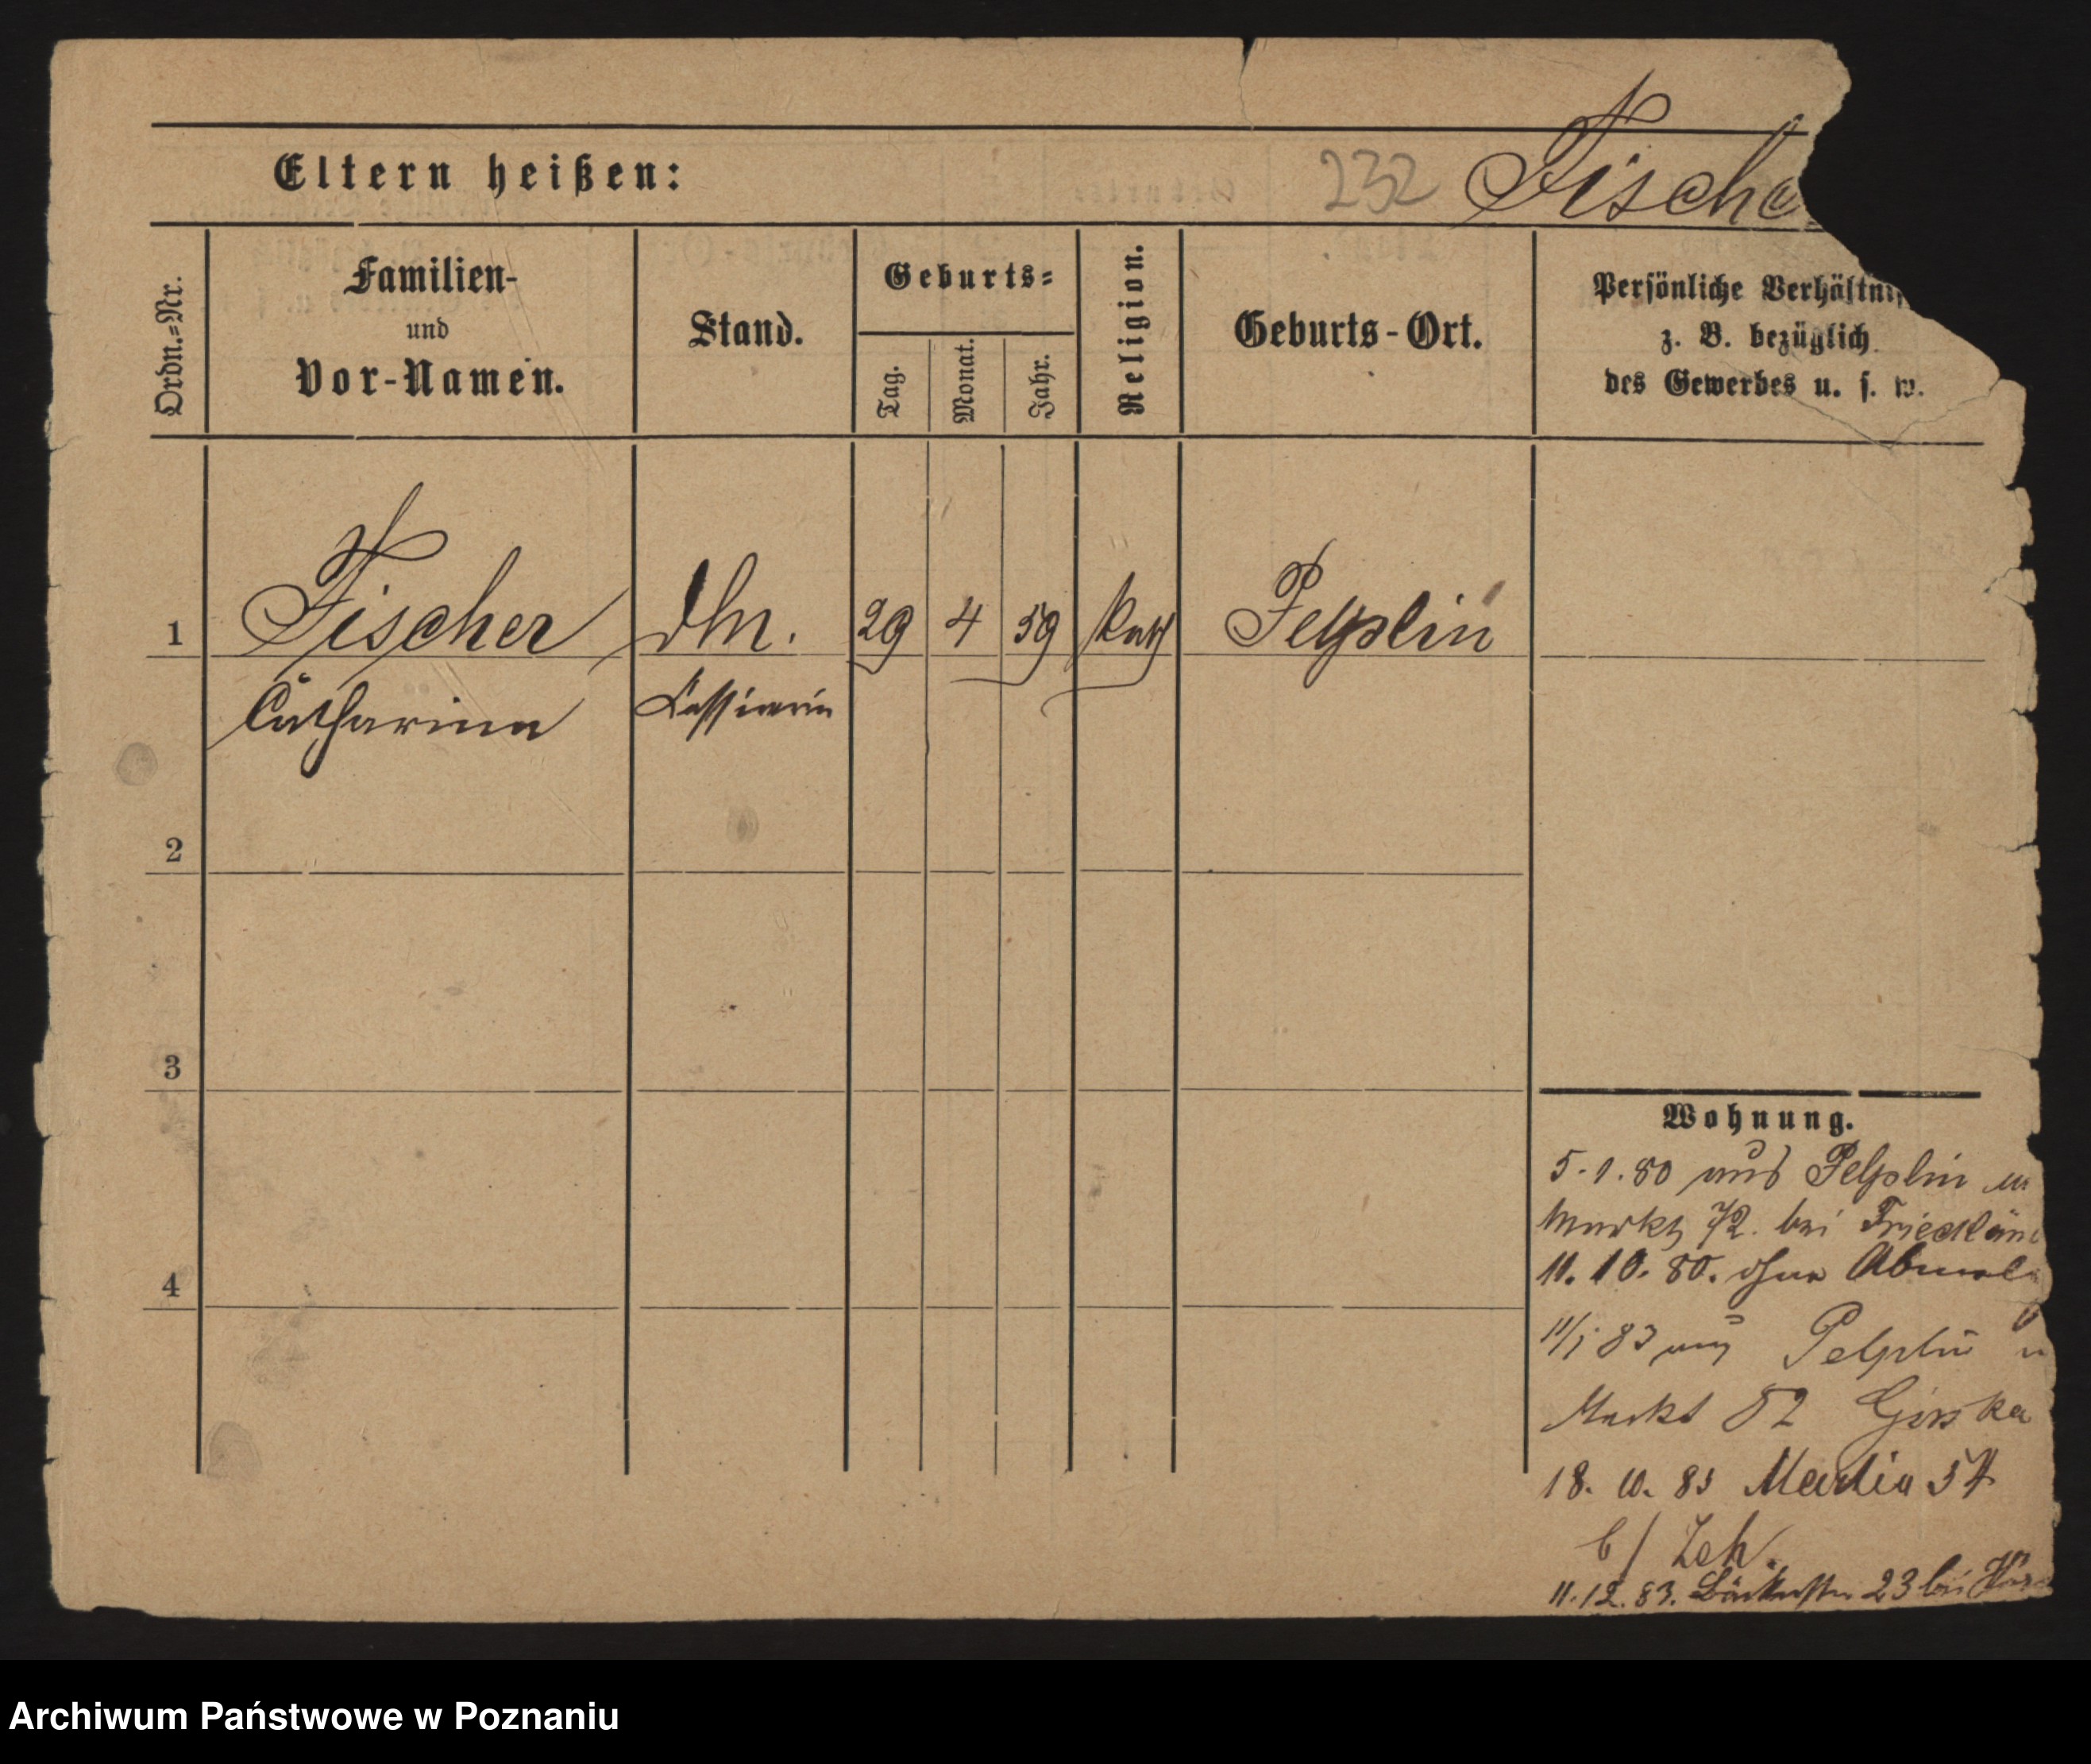 Eltern heißen:
232 Fische
Ordn.=Nr.
Familien-
und
Vor-Namen.
Stand.
Geburts=
Tag.
Monat.
Jahr.
Religion.
Geburts-Ort.
Persönliche Verhältnis
z. B. bezüglich
des Gewerbes u. s. w.
1 Fischer 29 4 59 kath Pelplin
Catharina Cassirerin
2
3
4
Wohnung.
5.1.80 aus Pelplin
Markt 72. bei Friedländ
11.10.80. ohne Abmel
11/1 83 aus Pelplin
Markt 82 Górska
18.10.83 Martin 54
b/ Zeh.
11.12.83. Bäckerstr 23 bei
Archiwum Państwowe w Poznaniu